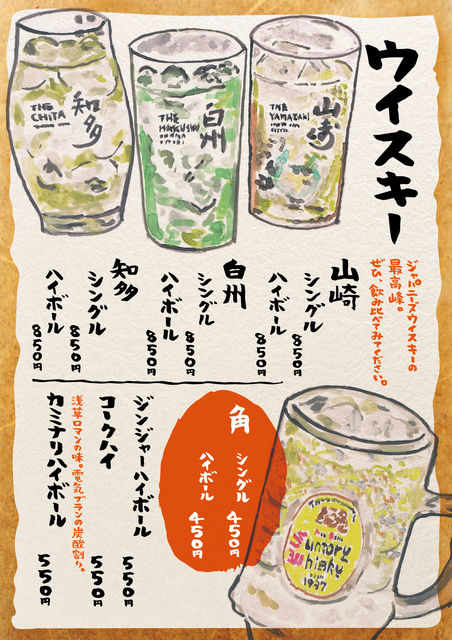 ウイスキー
ジャパニーズウイスキーの
最高峰。
ぜひ、飲み比べてみてください。
山崎
THE
YAMAZAKI
白州
THE
HAKUSHU
知多
THE
CHITA
山崎
シングル 850円
ハイボール 850円
白州
シングル 850円
ハイボール 850円
知多
シングル 850円
ハイボール 850円
角
シングル 450円
ハイボール 450円
ジンジャーハイボール 550円
コークハイ 550円
浅草ロマンの味。電気ブランの炭酸割り。
カミナリハイボール 550円
角
Suntory
Whisky
1937